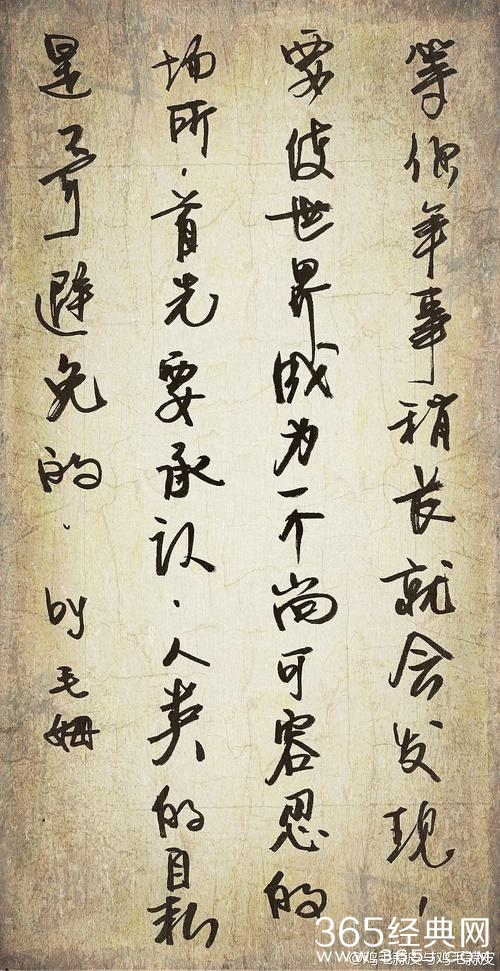 等你年事稍长就会发现，
要使世界成为一个尚可容忍的
场所，首先要承认，人类的自私
是不可避免的。by毛姆
365经典网
www.365j.com
@鸡毛蒜皮与鸡毛蒜皮